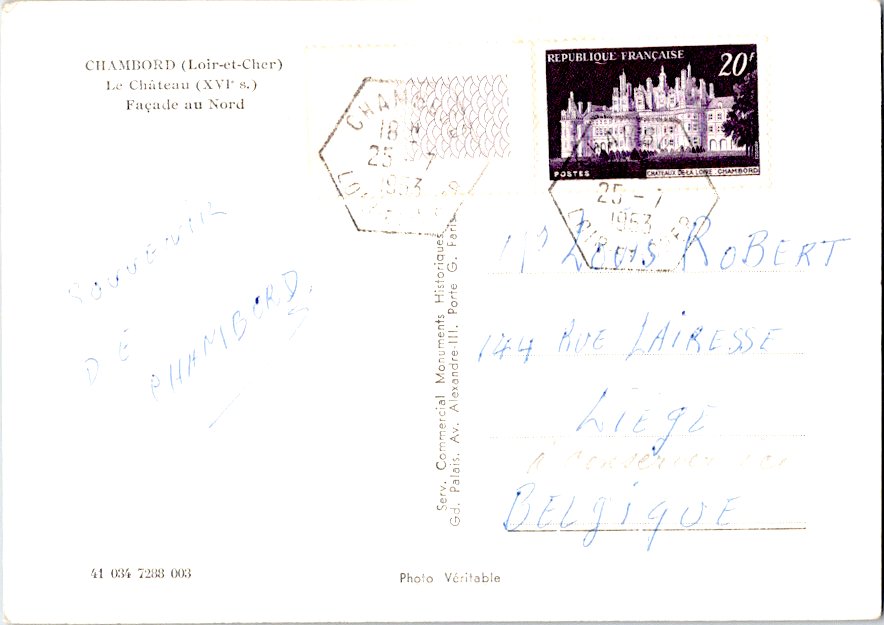 CHAMBORD (Loir-et-Cher)
Le Château (XVIᵉ s.)
Façade au Nord
RÉPUBLIQUE FRANÇAISE 20F
POSTES CHATEAUX DE LA LOIRE : CHAMBORD
18
25 - 7
1953
25 - 7
1953
SOUVENIR
DE
CHAMBORD.
Serv. Commercial Monuments Historiques,
Gd. Palais. Av. Alexandre-III. Porte G. Paris
LOUIS ROBERT
144 RUE LAIRESSE
LIÈGE
BELGIQUE
41 034 7288 003
Photo Véritable